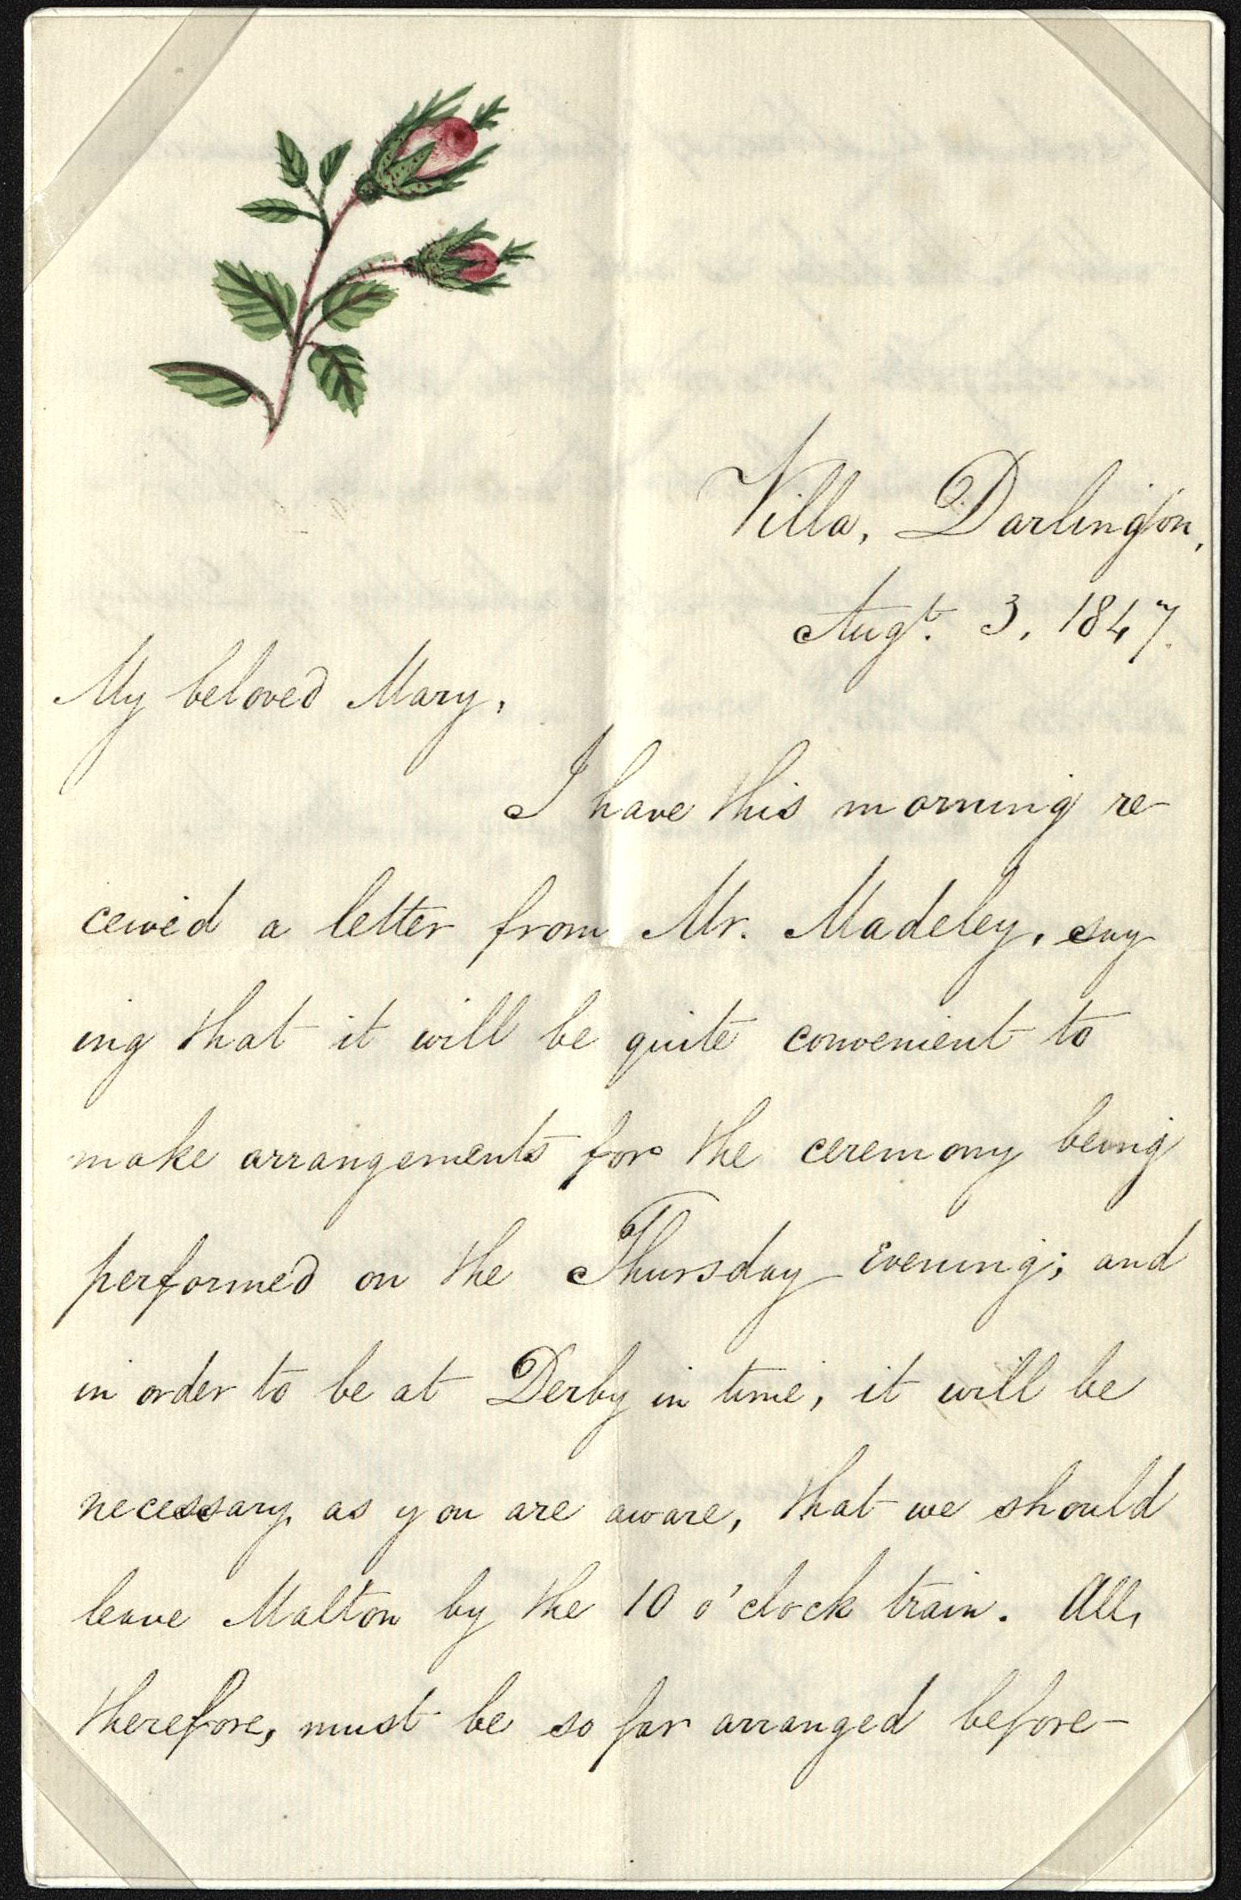 Villa, Darlington,
Augt. 3, 1847.
My beloved Mary,
I have this morning re-
ceived a letter from Mr. Madeley, say
ing that it will be quite convenient to
make arrangements for the ceremony being
performed on the Thursday evening; and
in order to be at Derby in time, it will be
necessary, as you are aware, that we should
leave Malton by the 10 o'clock train. All,
therefore, must be so far arranged before-